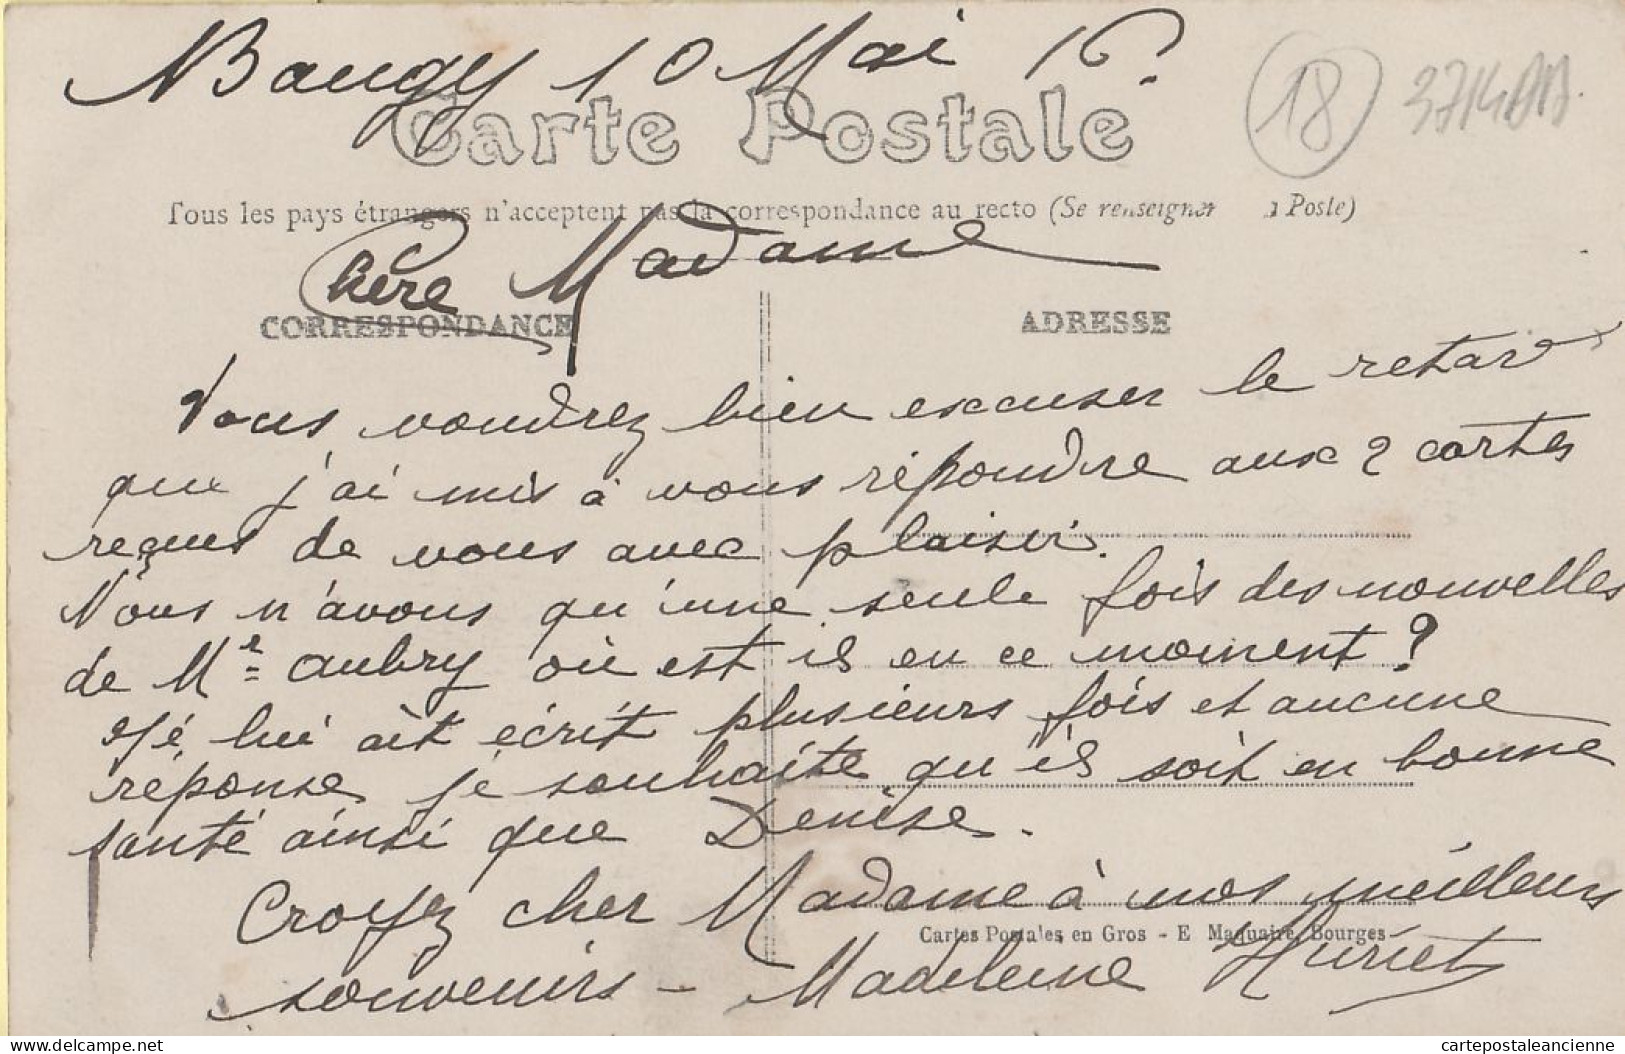 Baugy 10 Mai 16.
18 3714AB.
Carte Postale
Tous les pays étrangers n'acceptent pas la correspondance au recto (Se renseigner à Poste)
Chère Madame
CORRESPONDANCE
ADRESSE
Vous voudrez bien excuser le retard
que j'ai mis à vous répondre aux 2 cartes
reçus de vous avec plaisir.
Nous n'avons qu'une seule fois des nouvelles
de Mr Aubry où est il en ce moment ?
Je lui ait écrit plusieurs fois et aucune
réponse je souhaite qu'il soit en bonne
santé ainsi que Denise.
Croyez cher Madame à nos meilleurs
Cartes Postales en Gros - E Maquaire, Bourges
souvenirs - Madeleine Huriet
delcampe.net
cartepostaleancienne